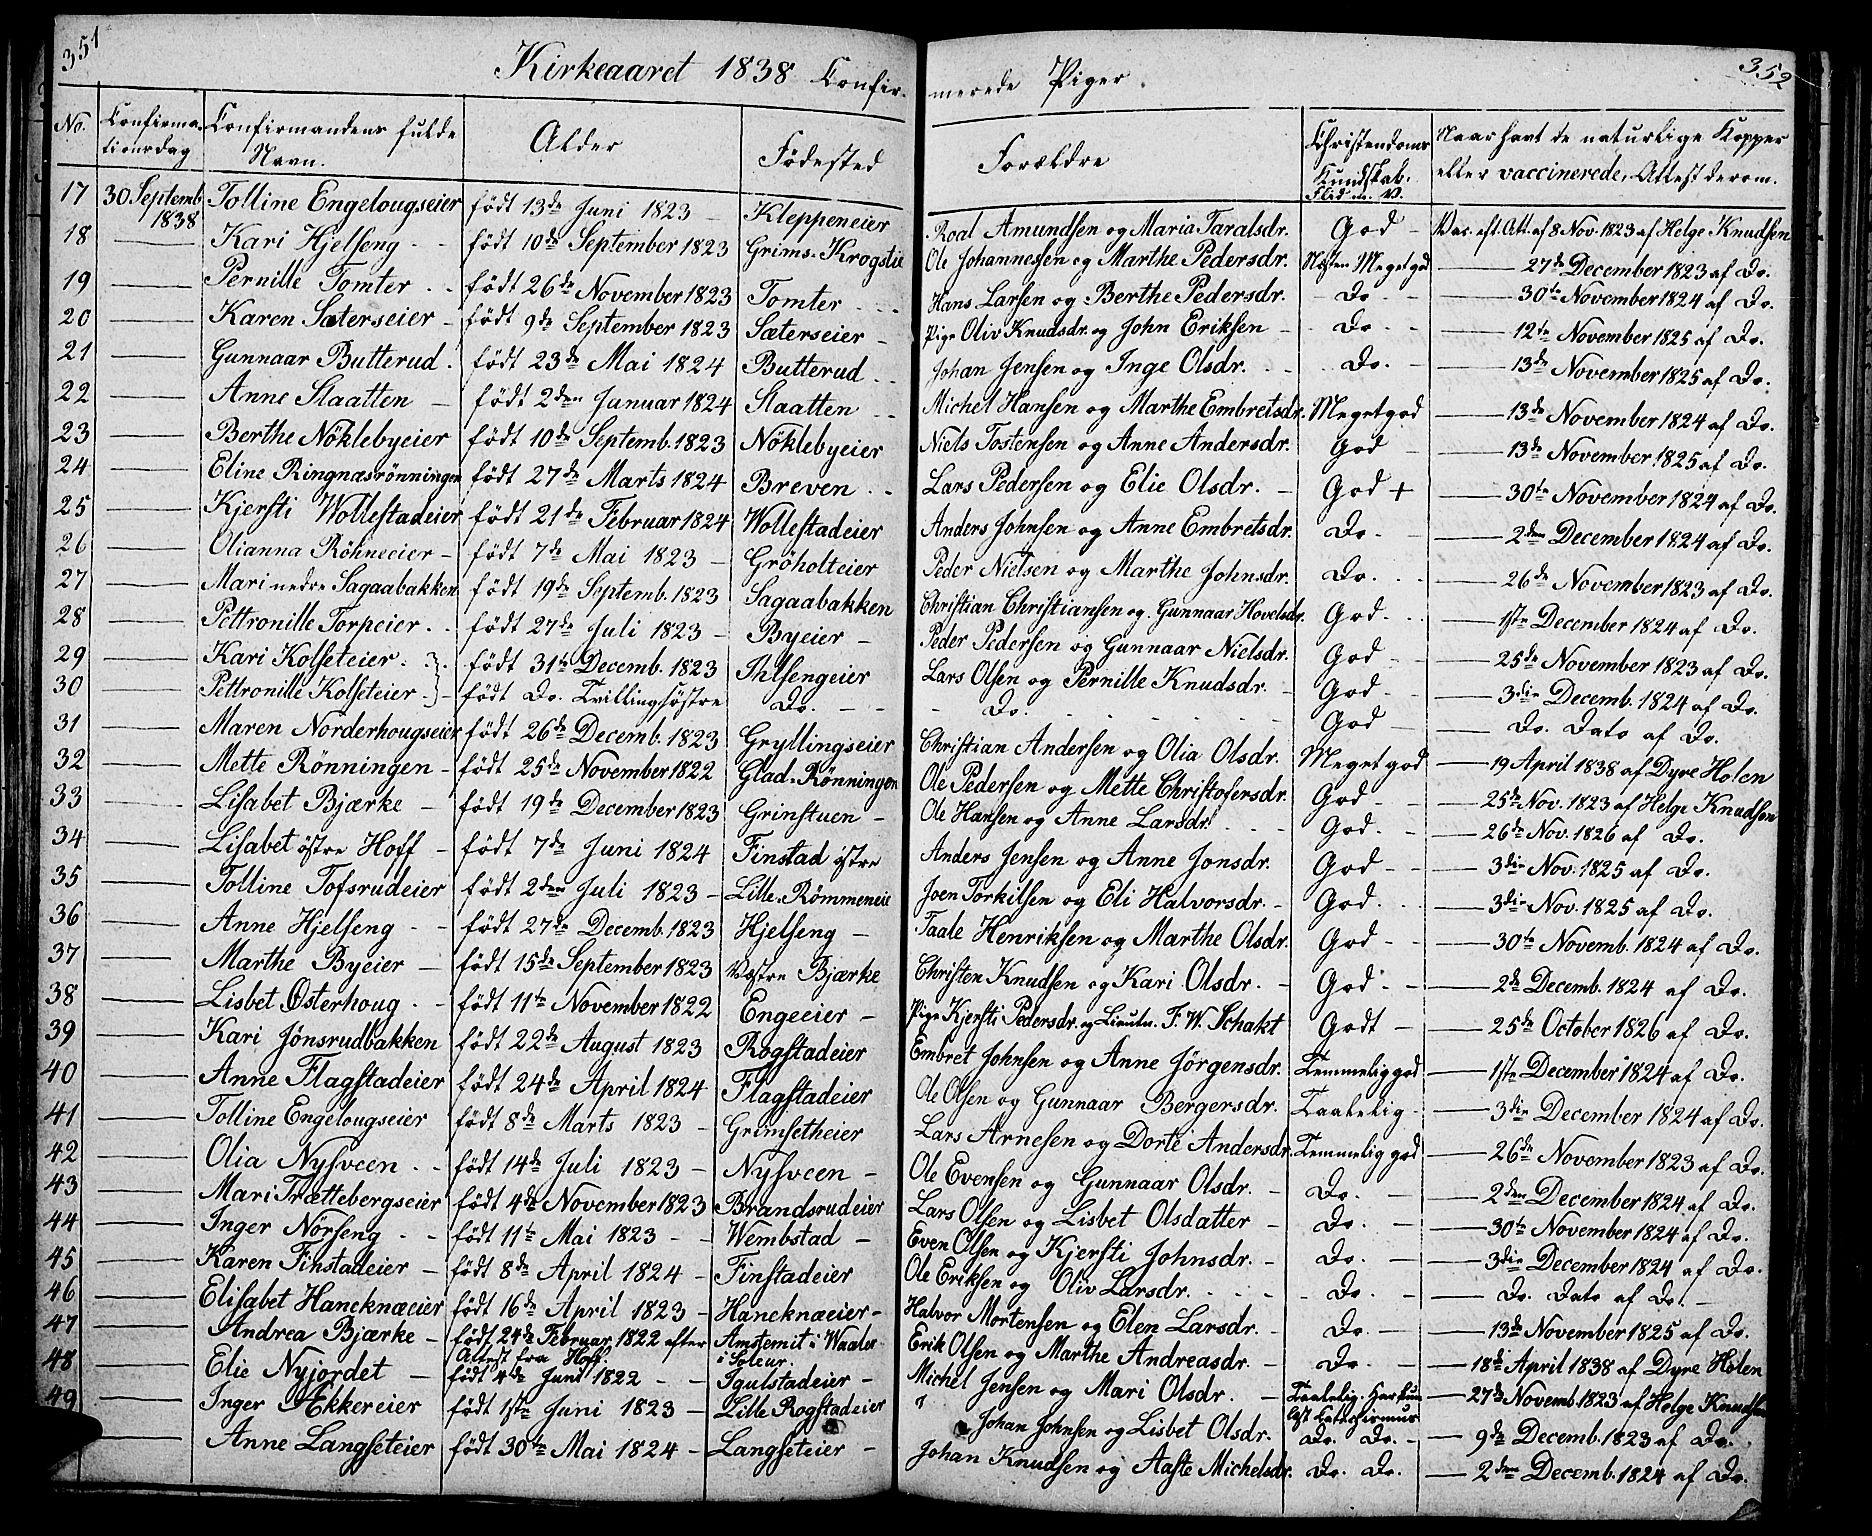 351
Kirkeaaret 1838 Confir-
merede Piger.
352
No. Confirma-tionsdag Confirmandens fulde Navn. Alder Födested Forældre Christendoms Kundskab. Flid m. V. Naar havt de naturlige Kopper eller vaccinerede, Attest derom.
17 30. Septemb 1838 Tolline Engelougseier födt 13de Juni 1823 – Kleppeneier Roal Amundsen og Maria Taralsdr. God – Vac. eft. Att. af 8 Nov. 1823 af Helge Knudsen
18 — Kari Hjelseng födt 10de September 1823 Grims-Krogstie Ole Johannessen og Marthe Pedersdr. Næsten Meget god — 27de December 1823 af Do.
19 — Pernille Tomter födt 26de November 1823 Tomter Hans Larsen og Berthe Pedersdr. Do — 30te November 1824 af Do.
20 — Karen Sæterseier födt 9de September 1823 Sæterseier Pige Oliv Knudsdr. og John Eriksen Do — 12te November 1825 af Do.
21 — Gunnaar Butterud födt 23de Mai 1824 Butterud Johan Jensen og Inge Olsdr. Do. — 13de November 1825 af Do.
22 — Anne Slaatten födt 2den Januar 1824 Slaatten Michel Hansen og Marthe Embretsdr. Meget god — 13de November 1824 af Do.
23 — Berthe Nöklebyeier födt 10de Septemb. 1823 Nöklebyeier Niels Tostensen og Anne Andersdr. God — 13de November 1825 af Do.
24 — Eline Ringnæsrönningen födt 27de Marts 1824 Breven Lars Pedersen og Elie Olsdr. God + — 30te November 1824 af Do.
25 — Kjersti Wollestadeier födt 21de Februar 1824 Wollestadeier Anders Johnsen og Anne Embretsdr. Do. — 2den December 1824 af Do.
26 — Olianna Röhneeier födt 7de Mai 1823 – Gröholteier Peder Nielsen og Marthe Johnsdr. Do. — 26de November 1823 af Do.
27 — Mari nedre Sagaabakken födt 19de Septemb. 1823 Sagaabakken Christian Christiansen og Gunnaar Hovelsdr. God — 1ste December 1824 af Do.
28 — Pettronille Torpeier födt 27de Juli 1823 – Byeier – Peder Pedersen og Gunnaar Nielsdr. God — 25de November 1823 af Do.
29 — Kari Kolseteier } födt 31te Decemb. 1823 Ihlsengeier Lars Olsen og Pernille Knudsdr. God — 3die Decemb. 1824 af Do.
30 — Pettronille Kolseteier } födt Do. Tvillingsöstre Do. Do. God — Do. Dato af Do.
31 — Maren Norderhougseier födt 26de Decemb. 1823 Gryllingseier Christian Andersen og Olia Olsdr. Meget god — 19 April 1838 af Dyre Holen
32 — Mette Rönningen födt 25de November 1822 Glad-Rönningen Ole Pedersen og Mette Christofersdr. God — 25de Nov. 1823 af Helge Knudsen
33 — Lisabet Bjærke födt 19de December 1823 Grinstuen Ole Hansen og Anne Larsdr. God — 26de Nov. 1826 af Do.
34 — Lisabet östre Hoff födt 7de Juni 1824 Finstad östre Anders Jensen og Anne Jonsdr. God — 3die Nov. 1825 af Do.
35 — Tolline Tofsrudeier födt 2den Juli 1823 – Lille-Römmeneie Joen Torkilsen og Eli Halvorsdr. God — 3die Nov. 1825 af Do.
36 — Anne Hjelseng födt 27de Decemb. 1823 Hjelseng Taale Henriksen og Marthe Olsdr. God — 30te Novemb. 1824 af Do.
37 — Marthe Byeier födt 15de September 1823 Vestre Bjærke Christen Knudsen og Kari Olsdr. God — 2de Decemb. 1824 af Do.
38 — Lisbet Österhoug födt 11te November 1822 Engeeier Pige Kjersti Pedersdr. og Lieutn. F. W. Schakt Godt — 25de October 1826 af Do.
39 — Kari Jönsrudbakken födt 22de August 1823 Rogstadeier Embret Johnsen og Anne Jörgensdr. Temmelig god — 1ste December 1824 af Do.
40 — Anne Flagstadeier födt 24de April 1824 Flagstadeier Ole Olsen og Gunnaar Bergersdr. Taalelig — 3die December 1824 af Do.
41 — Tolline Engelougseier födt 8de Marts 1823 – Grimsetheier Lars Arnesen og Dorte Andersdr. Temmelig god — 26de November 1823 af Do.
42 — Olia Nysveen födt 14de Juli 1823 – Nysveen Ole Evensen og Gunnaar Olsdr. Do. — 2den December 1824 af Do.
43 — Mari Trættebergseier födt 4de November 1823 Brandsrudeier Lars Olsen og Lisbet Olsdatter Do. — 30te November 1824 af Do.
44 — Inger Norseng födt 11te Mai 1823 – Wembstad Even Olsen og Kjersti Johnsdr. Do. — 3die December 1824 af Do.
45 — Karen Finstadeier födt 8de April 1824 – Finstadeier Ole Eriksen og Oliv Larsdr. Do. — Do. Dato af Do.
46 — Elisabet Haneknæeier födt 16de April 1823 – Haneknæeier Halvor Mortensen og Elen Larsdr. Do. — 13de November 1825 af Do.
47 — Andrea Bjærke födt 24de Februar 1822 efter Attest fra Hoff. i Waaler i Soleur. Erik Olsen og Marthe Andreasdr. Do. — 18de April 1838 af Dyre Holen
48 — Elie Nyjordet födt 4de Juni 1822 – Igulstadeier Michel Jensen og Mari Olsdr. Taalelig. Har kun læst Catechismus — 27de Novemb. 1823 af Helge Knudsen
49 — Inger Ekkereier födt 1ste Juni 1823 – Lille Rogstadeier Johan Johnsen og Lisbet Olsdr. Do. Do. — 9de Decemb. 1823 af Do.
— Anne Langseteier födt 30te Mai 1824 – Langseteier Johan Knudsen og Aaste Michelsdr. Do. Do. — 2den Decemb. 1824 af Do.